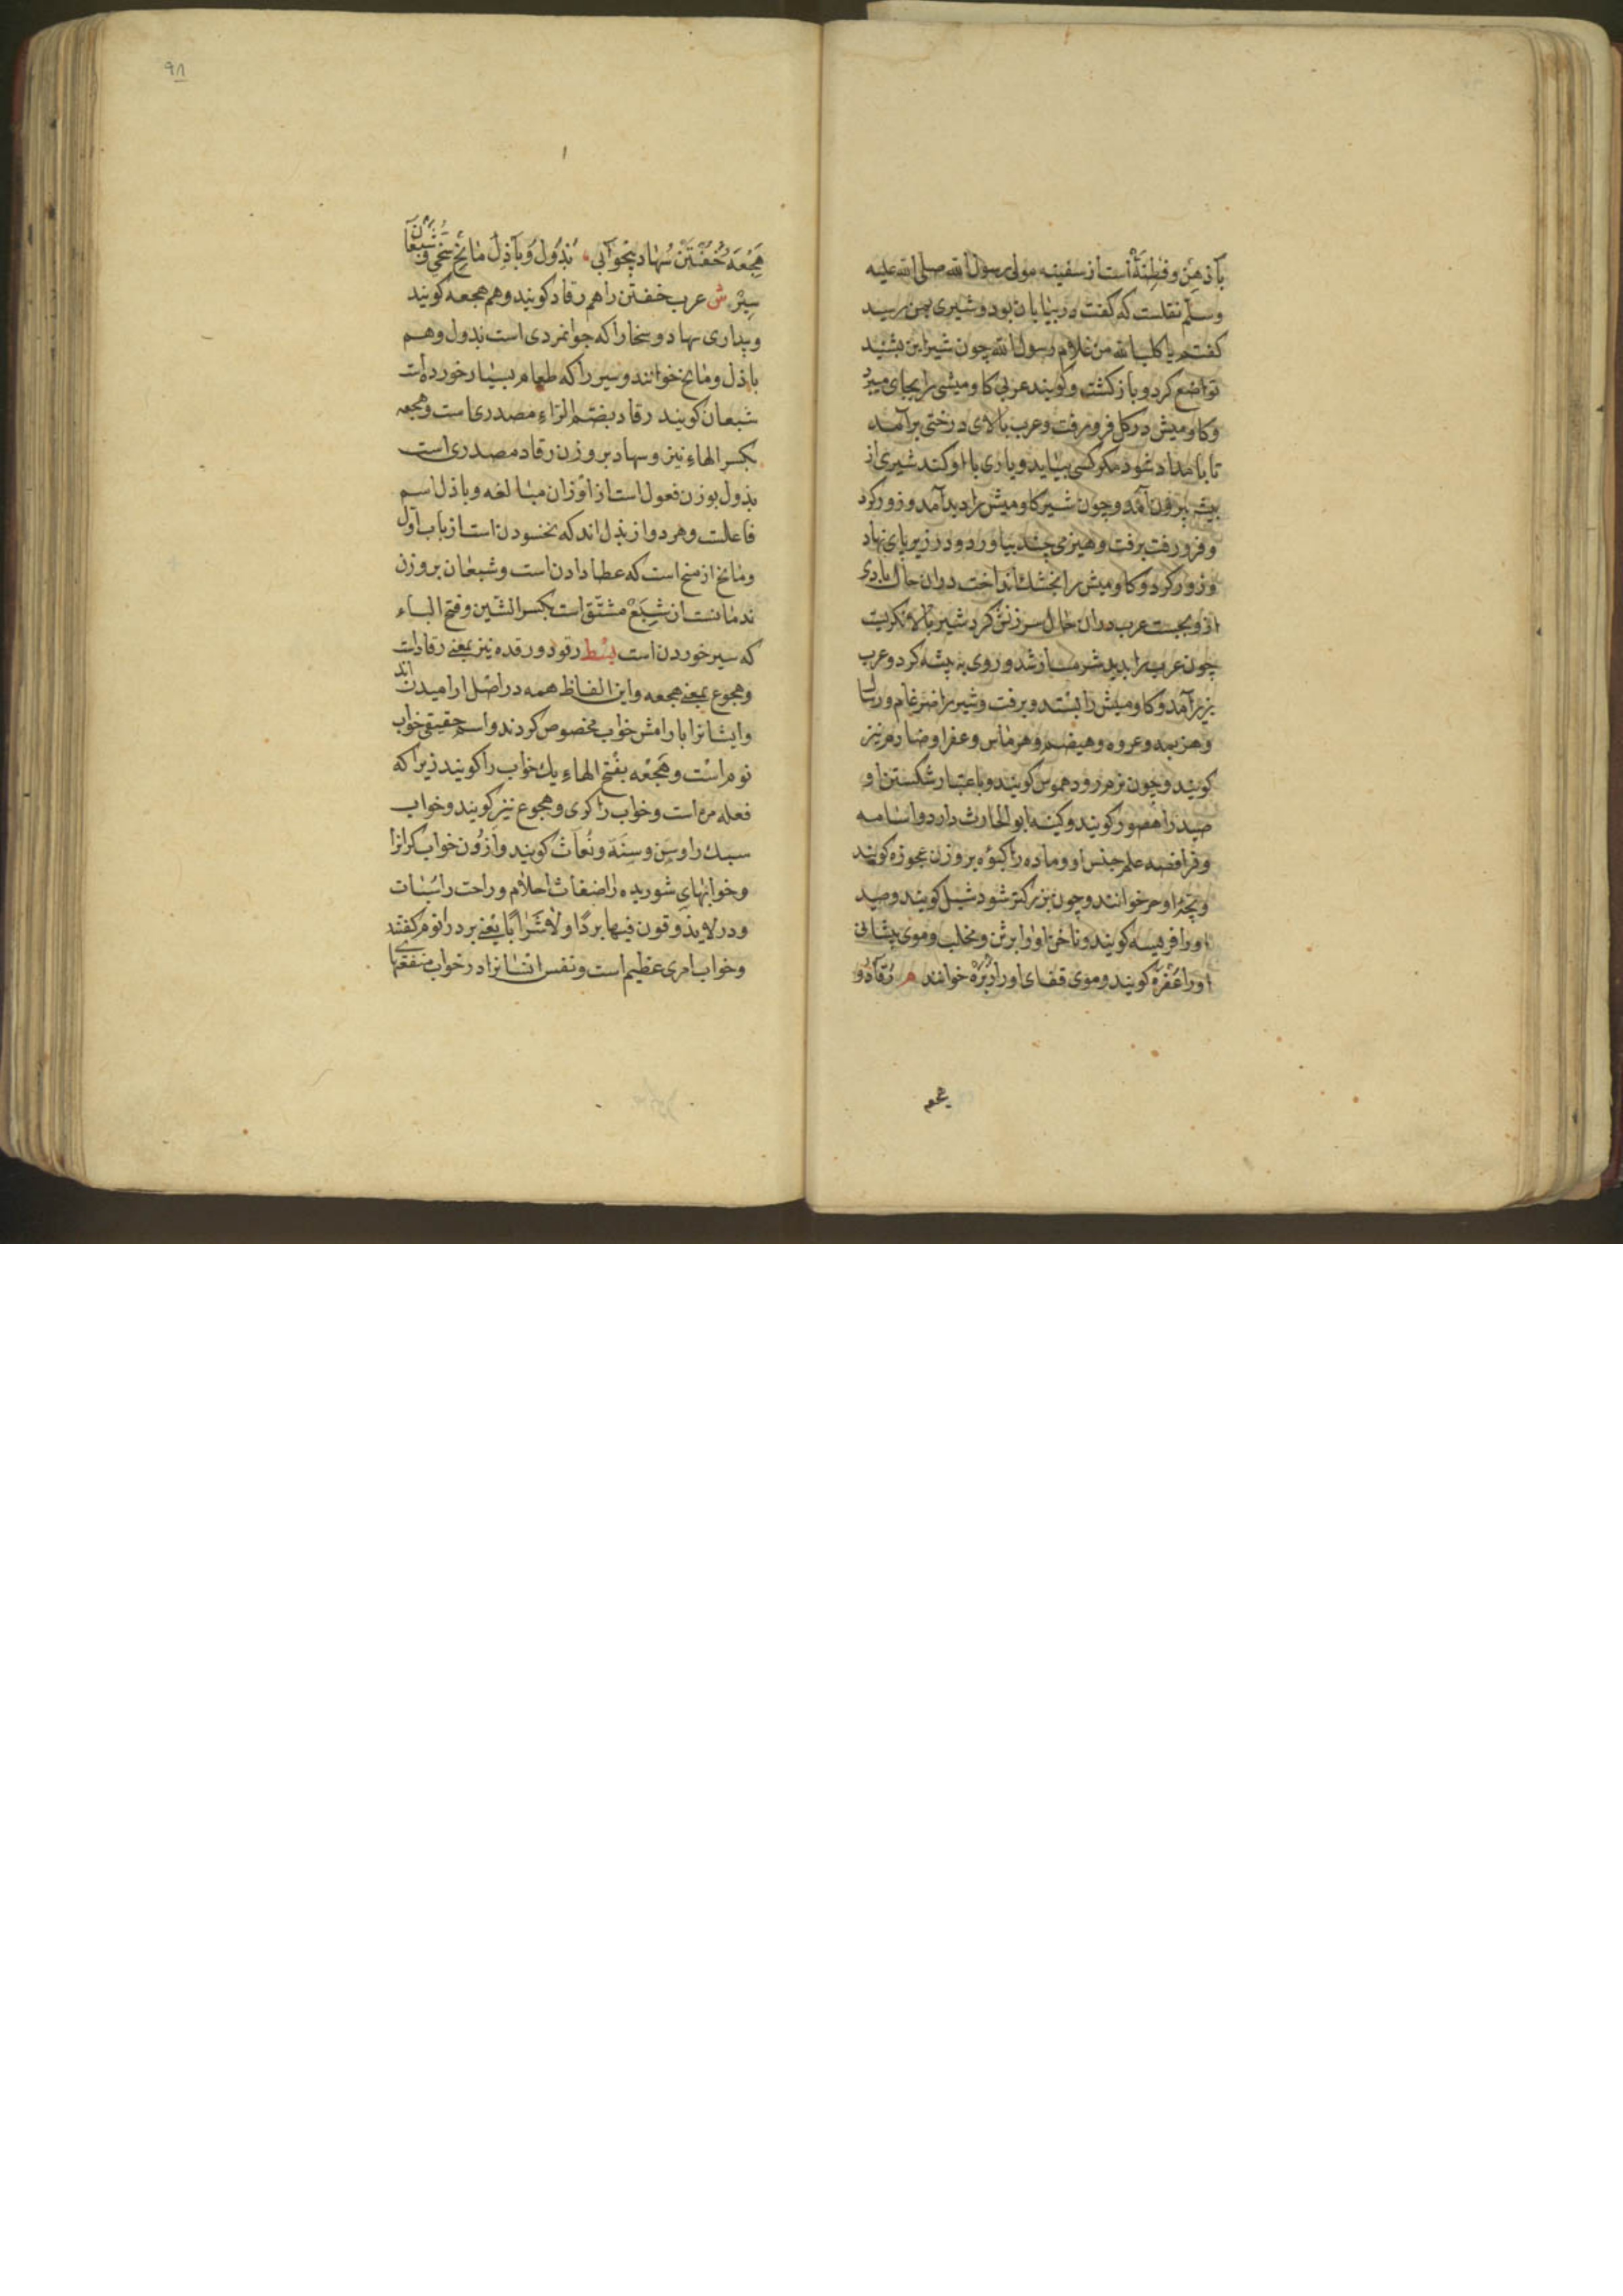 با ذهن و فطنة است از سفینه مولی رسول الله صلی الله علیه
وسلم نقلست که کفت در بیابان بود و شیری بمن رسید
کفتم یا کلب الله من غلام رسول الله چون شیر این بشنید
تواضع کرد و باز کشت و کویند عربی کاومیشی را بجای میبرد
و کاومیش در کل فرو رفت و عرب بالای درختی برآمد
تا بامداد شود مکر کسی بیاید و یاری با او کند شیری از
بیشه بیرون آمد و چون شیر کاومیش را دید آمد و زور کرد
و فرو رفت برفت و هیزمی چند بیاورد و در زیر پای نهاد
و زور کرد و کاومیش را بخشک انداخت دران حال بادی
ازو بجست عرب دران حال سرزنش کرد شیر بالا نکریست
چون عرب را بدید شرمسار شد و روی به بیشه کرد و عرب
بزیر آمد و کاومیش را بستد و برفت و شیر را ضرغام و رسال
وهزبر و عروه و هیضم و هرماس و عفرا و ضارم نیز
کویند و چون نرم رود هموس کویند و باعتبار شکستن او
صید را هصور کویند و کنیه ابو الحارث دارد و اسامه
و فرافصه علم جنس او و ماده را لبؤه بر وزن عجوزه کویند
و بچهٔ او جرو خوانند و چون بزرکتر شود شبل کویند و صید
او را فریسه کویند و ناخن او را برثن و مخلب و موی پیشانی
او را عفره کویند و موی قفای او را زبره خوانند م رقاد و
هجعه
٩٨
هجعه خفتن سهاد بیخوابی بذول و باذل مانح سخی و شبعان
سیر ش عرب خفتن را هم رقاد کویند و هم هجعه کویند
و بیداری سهاد و سخا را که جوانمردی است بذول و هم
باذل و مانح خوانند و سیر را که طعام بسیار خورده است
شبعان کویند رقاد بضم الراء مصدری است و هجعه
بکسر الهاء نیز و سهاد بر وزن رقاد مصدری است
بذول بوزن فعول است از اوزان مبالغه و باذل اسم
فاعلست و هر دو از بذل اند که بخشودن است از باب اول
و مانح از منح است که عطا دادن است و شبعان بر وزن
ندمانست از شبع مشتق است بکسر الشین و فتح الباء
که سیر خوردن است بسط رقود و رقده نیز بمعنی رقاد است
و هجوع بمعنی هجعه و این الفاظ همه در اصل ارامیدن اند
و ایشانرا بارامش خواب مخصوص کردند و اسم حقیقی خواب
نوم است و هجعه بفتح الهاء یك خواب را کویند زیرا که
فعله مره است و خواب را کری و هجوع نیز کویند و خواب
سبك را وسن و سنة و نعاس کویند و خواب کرانرا
و خوابهای شوریده را اضغاث احلام و راحت را سبات
و در لا یذوقون فیها بردًا و لا شرابًا یعنی برد را نوم کفتند
و خواب امری عظیم است و نفس انسانرا در خواب منفعتها